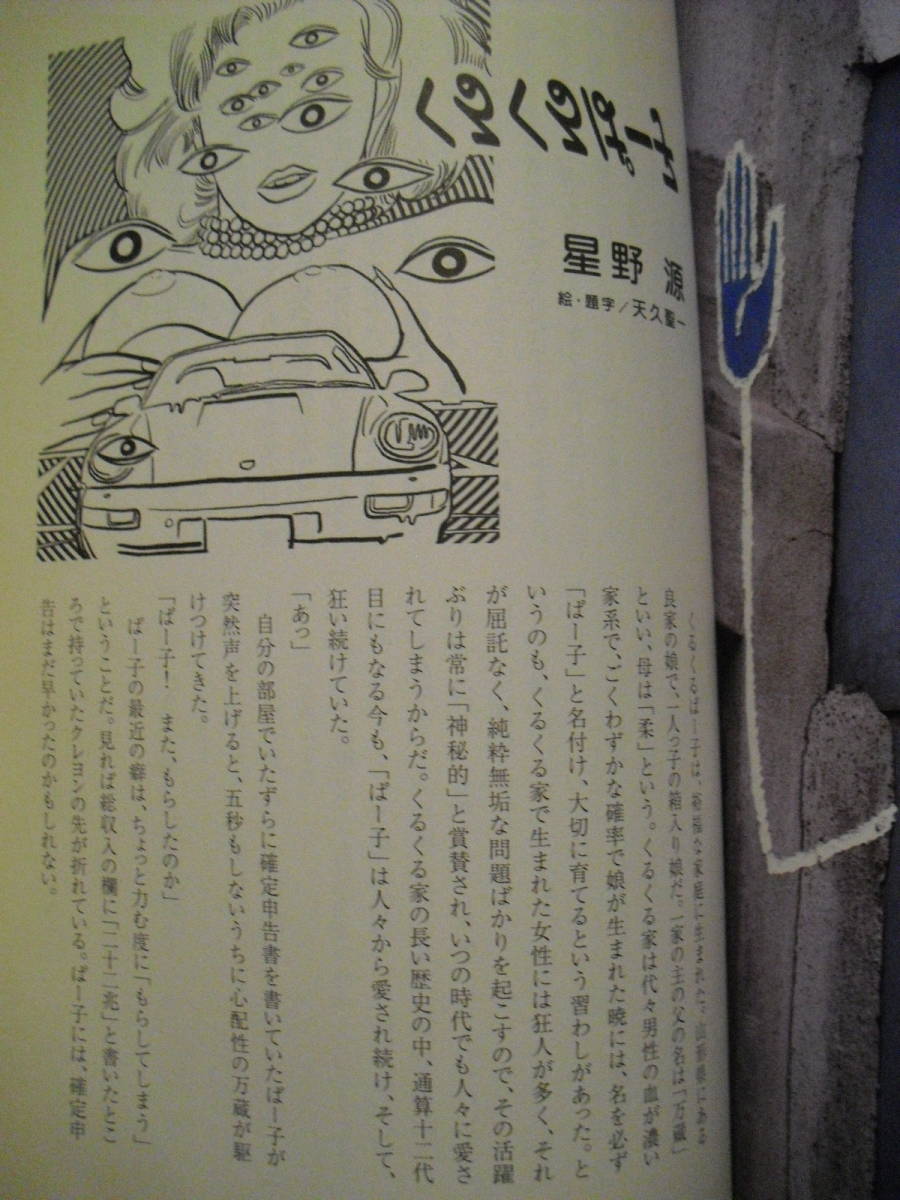 くるくる
ぱー子
星野 源
絵・題字／天久聖一
くるくるぱー子は、裕福な家庭に生まれた。山形県にある
良家の娘で、一人っ子の箱入り娘だ。一家の主の父の名は「万蔵」
といい、母は「柔」という。くるくる家は代々男性の血が濃い
家系で、ごくわずかな確率で娘が生まれた暁には、名を必ず
「ぱー子」と名付け、大切に育てるという習わしがあった。と
いうのも、くるくる家で生まれた女性には狂人が多く、それ
が屈託なく、純粋無垢な問題ばかりを起こすので、その活躍
ぶりは常に「神秘的」と賞賛され、いつの時代でも人々に愛さ
れてしまうからだ。くるくる家の長い歴史の中、通算十二代
目にもなる今も、「ぱー子」は人々から愛され続け、そして、
狂い続けていた。
「あっ」
自分の部屋でいたずらに確定申告書を書いていたぱー子が
突然声を上げると、五秒もしないうちに心配性の万蔵が駆
けつけてきた。
「ぱー子！　また、もらしたのか」
ぱー子の最近の癖は、ちょっと力む度に「もらしてしまう」
ということだ。見れば総収入の欄に「二十二兆」と書いたとこ
ろで持っていたクレヨンの先が折れている。ぱー子には、確定申
告はまだ早かったのかもしれない。